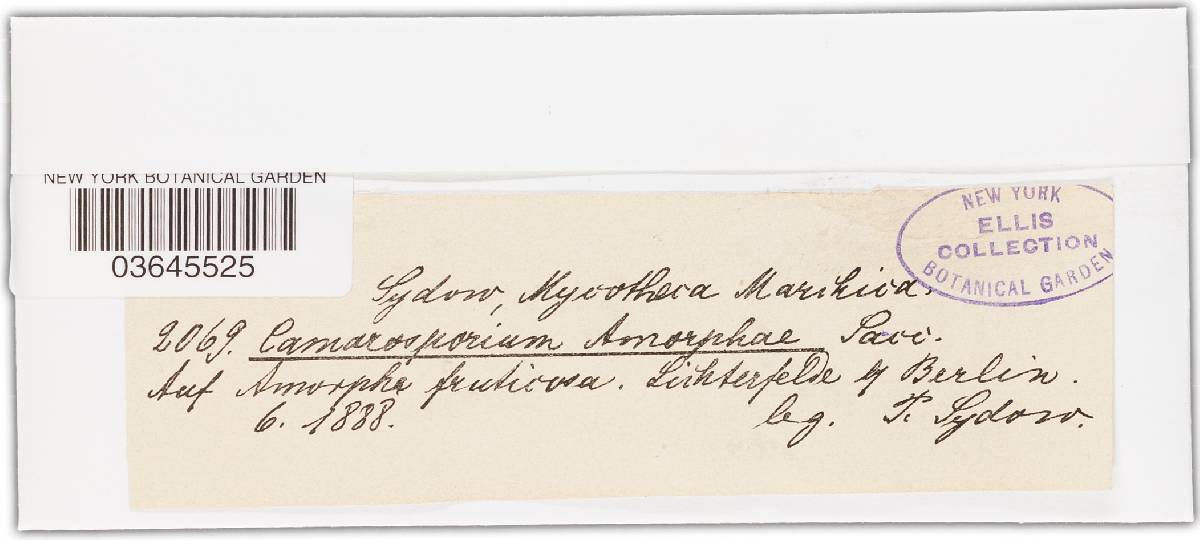 NEW YORK BOTANICAL GARDEN
03645525
NEW YORK
ELLIS
COLLECTION
BOTANICAL GARDEN
Sydow, Mycotheca Marchica.
2069. Camarosporium Amorphae Sacc.
Auf Amorpha fruticosa. Lichterfelde b/ Berlin.
6. 1888. leg. P. Sydow.